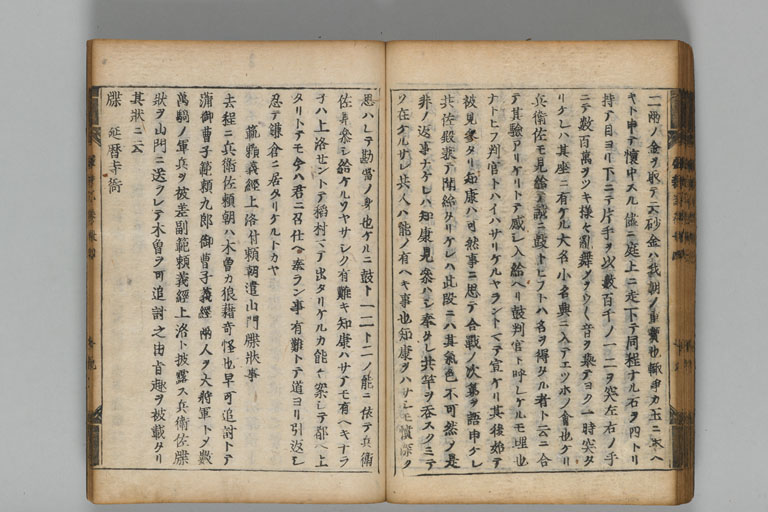 二兩ノ金ヲ取テ云砂金ハ我朝ノ重寶也輙争カ玉ニ不ヘ
キト申テ懷中スル儘ニ庭上ニ走下テ同程ナル石ヲ四トリ
持テ目ヨリ下ニテ片手ヲ以數百千ノ一二ヲ突左右ノ手
ニテ數百萬ヲツキ様々亂舞
音ヲ乘テヨク一時突タ
リケレハ其座ニ有ケル大名小名興ニ入テエツホノ會也ケリ
兵衛佐モ見給テ誠ニ鼓トヒフトハ名ヲ得タル者ト云ニ合
テ其驗アリケリトテ感シ入給ヘリ鼓判官ト呼レケルモ理也
ナトヒフ判官トハイハサリケルヤラントマテ宣ケリ其後始テ
被見參タリ知康ハ可然事ニ思テ合戰ノ次第ヲ語申ケレ
共佐殿兼テ聞給タリケレハ此段ニハ其氣色不可然ノ是
非ノ返事ナケレハ知康見參ハシ奉タレ共竿ヲ呑スクミテ
ソ在ケルサレ共人ハ能ノ有ヘキ事也知康ヲハサシモ憤深ク
思ハレテ勘當ノ身也ケルニ鼓ト一二ト二ノ能ニ依テ兵衛
佐見參シ給ケルソヤサシク有難キ知康ハサテモ有ヘキナラ
子ハ上洛セントテ稻村マテ出タリケルカ能々案シテ都ヘ上
タリトテモ今ハ君ニ召仕ヘ奉ラン事有難トテ道ヨリ引返シ
忍テ鎌倉ニ居タリケルトカヤ
範頼義經上洛付頼朝遣山門牒狀事
去程ニ兵衛佐頼朝ハ木曽カ狼藉奇怪也早可追討トテ
蒲御曹子範頼九郎御曹子義經兩人ヲ大將軍トメ數
萬騎ノ軍兵ヲ被差副範頼義經上洛ト披露ス兵衛佐牒
狀ヲ山門ニ送クレテ木曽ヲ可追討之由旨趣ヲ被載タリ
其狀ニ云
牒 延暦寺衙